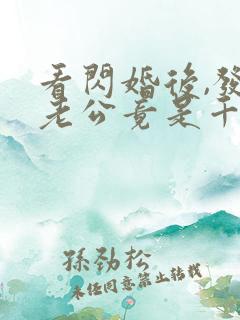 看閃婚後,發
老公竟是千
孫勁松
未经同意禁止转载